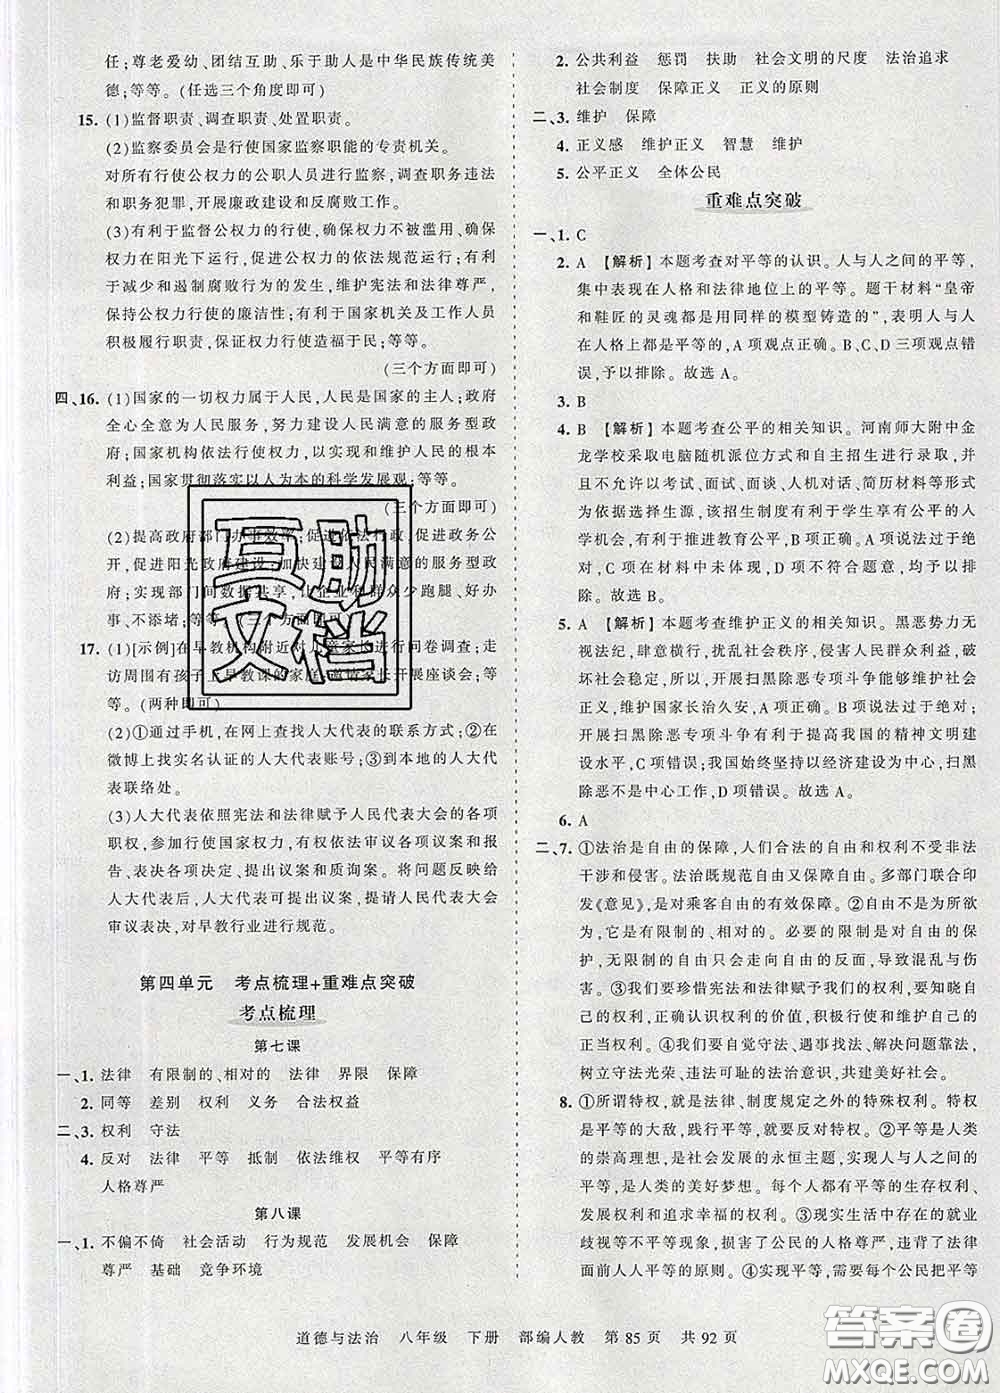 任;尊老爱幼、团结互助、乐于助人是中华民族传统美
德;等等。(任选三个角度即可)
15. (1)监督职责、调查职责、处置职责。
(2)监察委员会是行使国家监察职能的专责机关。
对所有行使公权力的公职人员进行监察,调查职务违法
和职务犯罪,开展廉政建设和反腐败工作。
(3)有利于监督公权力的行使,确保权力不被滥用、确保
权力在阳光下运行,促进公权力的依法规范运行;有利
于减少和遏制腐败行为的发生,维护宪法和法律尊严,
保持公权力行使的廉洁性;有利于国家机关及工作人员
积极履行职责,保证权力行使造福于民;等等。
(三个方面即可)
四、16. (1)国家的一切权力属于人民,人民是国家的主人;政府
全心全意为人民服务,努力建设人民满意的服务型政
府;国家机构依法行使权力,坚持对人民负责的根本
利益;国家贯彻落实以人为本的科学发展观;等等。
(三个方面即可)
(2)提高政府部门办事效率;促进依法行政,促进政务公
开,促进阳光政府建设;加快建设人民满意的服务型政
府;实现部门间数据共享,让企业和群众少跑腿、好办
事、不添堵;等等。(三个方面即可)
17. (1)[示例]在早教机构附近对儿童家长进行问卷调查;走
访周围有孩子上早教课的家庭;邀请家长开展座谈会;等
等。(两种即可)
(2)①通过手机,在网上查找人大代表的联系方式;②在
微博上找实名认证的人大代表账号;③到本地的人大代
表联络处。
(3)人大代表依照宪法和法律赋予人民代表大会的各项
职权,参加行使国家权力。有权依法审议各项议案和报
告、表决各项决定、提出议案和质询案。将问题反映给人
大代表后,人大代表可提出议案,提请人民代表大会
审议表决,对早教行业进行规范。
第四单元 考点梳理+重难点突破
考点梳理
第七课
一、1. 法律 有限制的、相对的 法律 界限 保障
2. 同等 差别 权利 义务 合法权益
二、3. 权利 守法
4. 反对 法律 平等 抵制 依法维权 平等有序
人格尊严
第八课
一、1. 不偏不倚 社会活动 行为规范 发展机会 保障
尊严 基础 竞争环境
2. 公共利益 惩罚 扶助 社会文明的尺度 法治追求
社会制度 保障正义 正义的原则
二、3. 维护 保障
4. 正义感 维护正义 智慧 维护
5. 公平正义 全体公民
重难点突破
一、1. C
2. A 【解析】本题考查对平等的认识。人与人之间的平等,
集中表现在人格和法律地位上的平等。题干材料"皇帝
和鞋匠的灵魂都是用同样的模型铸造的",表明人与人
在人格上都是平等的,A项观点正确。B、C、D三项观点错
误,予以排除。故选A。
3. B
4. B 【解析】本题考查公平的相关知识。河南师大附中金
龙学校采取电脑随机派位方式和自主招生进行录取,并
且不允许以考试、面试、面谈、人机对话、简历材料等形式
为依据选择生源,该招生制度有利于学生享有公平的机
会,有利于推进教育公平,B项正确。A项说法过于绝
对;C项在材料中未体现,D项不符合题意,均予以排
除。故选B。
5. A 【解析】本题考查维护正义的相关知识。黑恶势力无
视法纪,肆意横行,扰乱社会秩序,侵害人民群众利益,破
坏社会稳定,所以,开展扫黑除恶专项斗争能够维护社会
正义,维护国家长治久安,A项正确。B项说法过于绝对;
开展扫黑除恶专项斗争有利于提高我国的精神文明建
设水平,C项错误;我国始终坚持以经济建设为中心,扫黑
除恶不是中心工作,D项错误。故选A。
6. A
二、7. ①法治是自由的保障,人们合法的自由和权利不受非法
干涉和损害。法治既规范自由又保障自由。多部门联合印
发《意见》,是对乘客自由的有效保障。②自由不是为所欲
为,它是有限制的、相对的。必要的限制是对自由的保护,
无限制的自由只会走向自由的反面,导致混乱与伤
害。③我们要珍惜宪法和法律赋予我们的自由和权利,
正确认识权利的价值,积极行使和维护自己的
正当权利。④我们要自觉守法、遇事找法、解决问题靠法,
树立守法光荣、违法可耻的法治意识,共建美好社会。
8. ①所谓特权,就是法律、制度规定之外的特殊权利。特权
是平等的大敌,践行平等,就要反对特权。②平等是人类
的崇高理想,是社会发展的永恒主题,实现人与人之间的
平等,是人类的美好梦想。每个人都有平等的生存权利、
发展权利和追求幸福的权利。③现实生活中存在的就业
歧视等不平等现象,损害了公民的人格尊严,违背了法律
面前人人平等的原则。④实现平等,需要每个公民把平等
道德与法治 八年级 下册 部编人教 第85页 共92页
互助
文档
答案圈
MXQE.COM